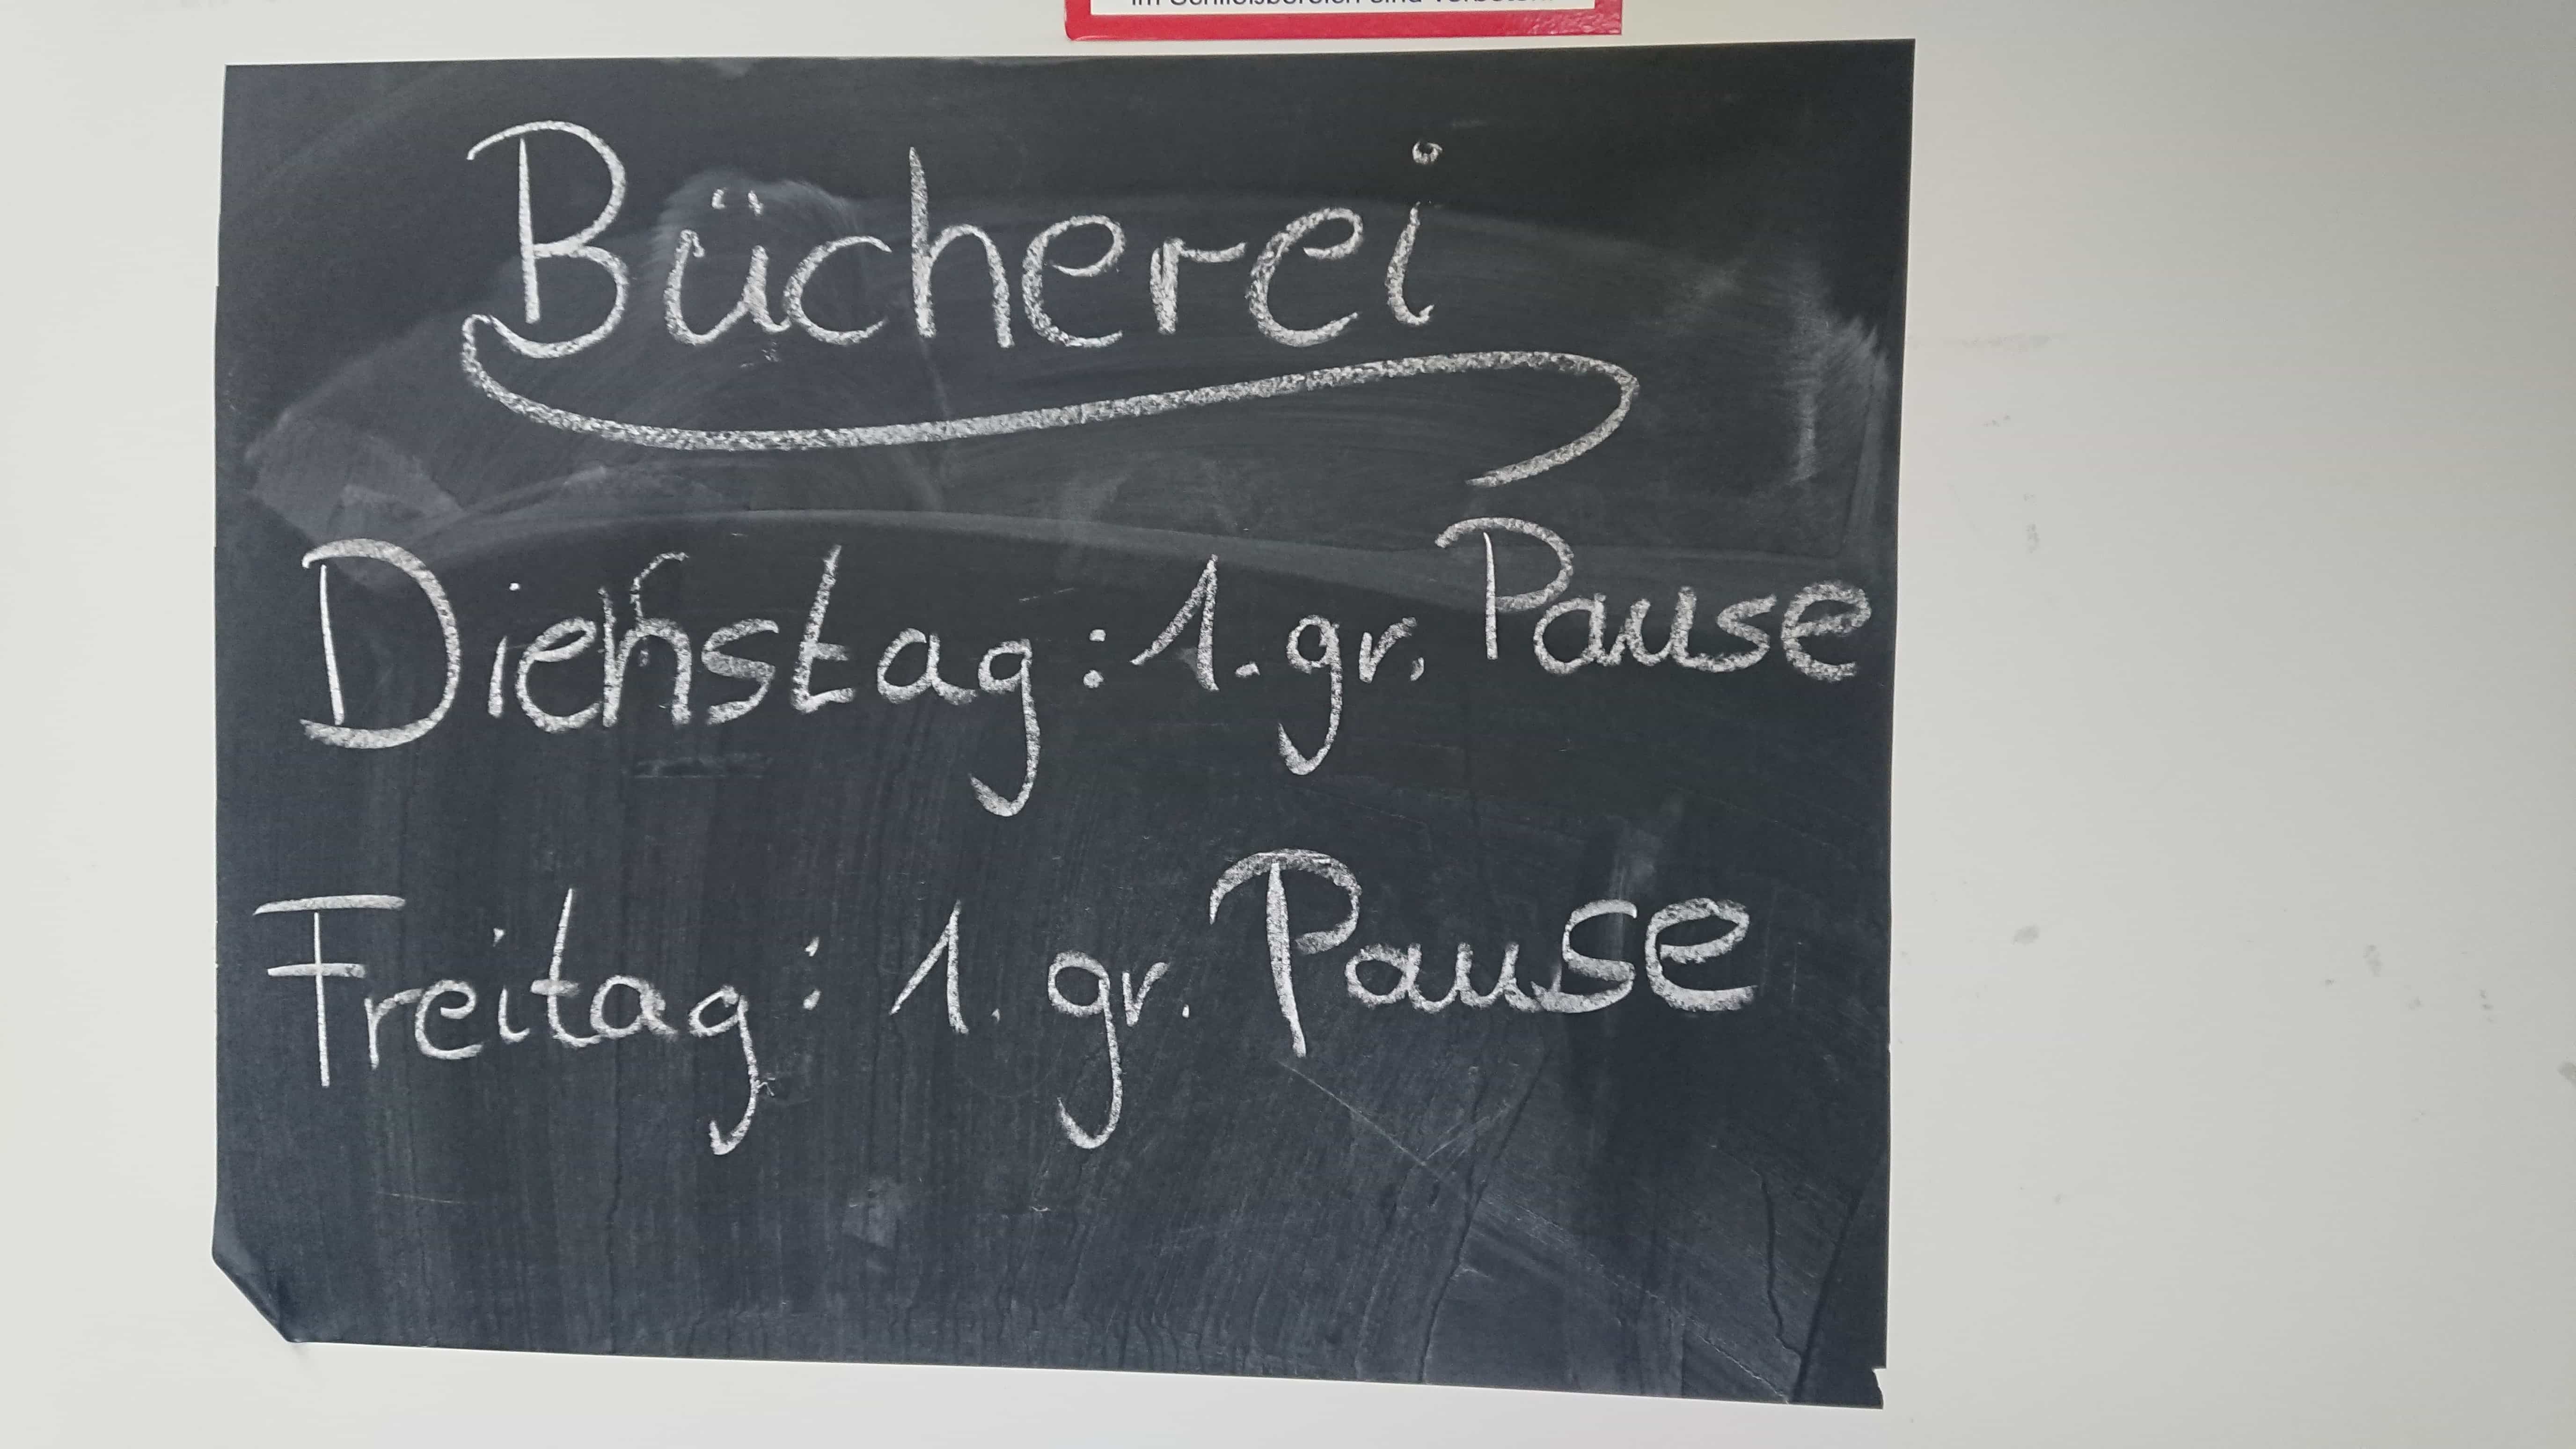 Bücherei
Dienstag: 1. gr. Pause
Freitag: 1. gr. Pause